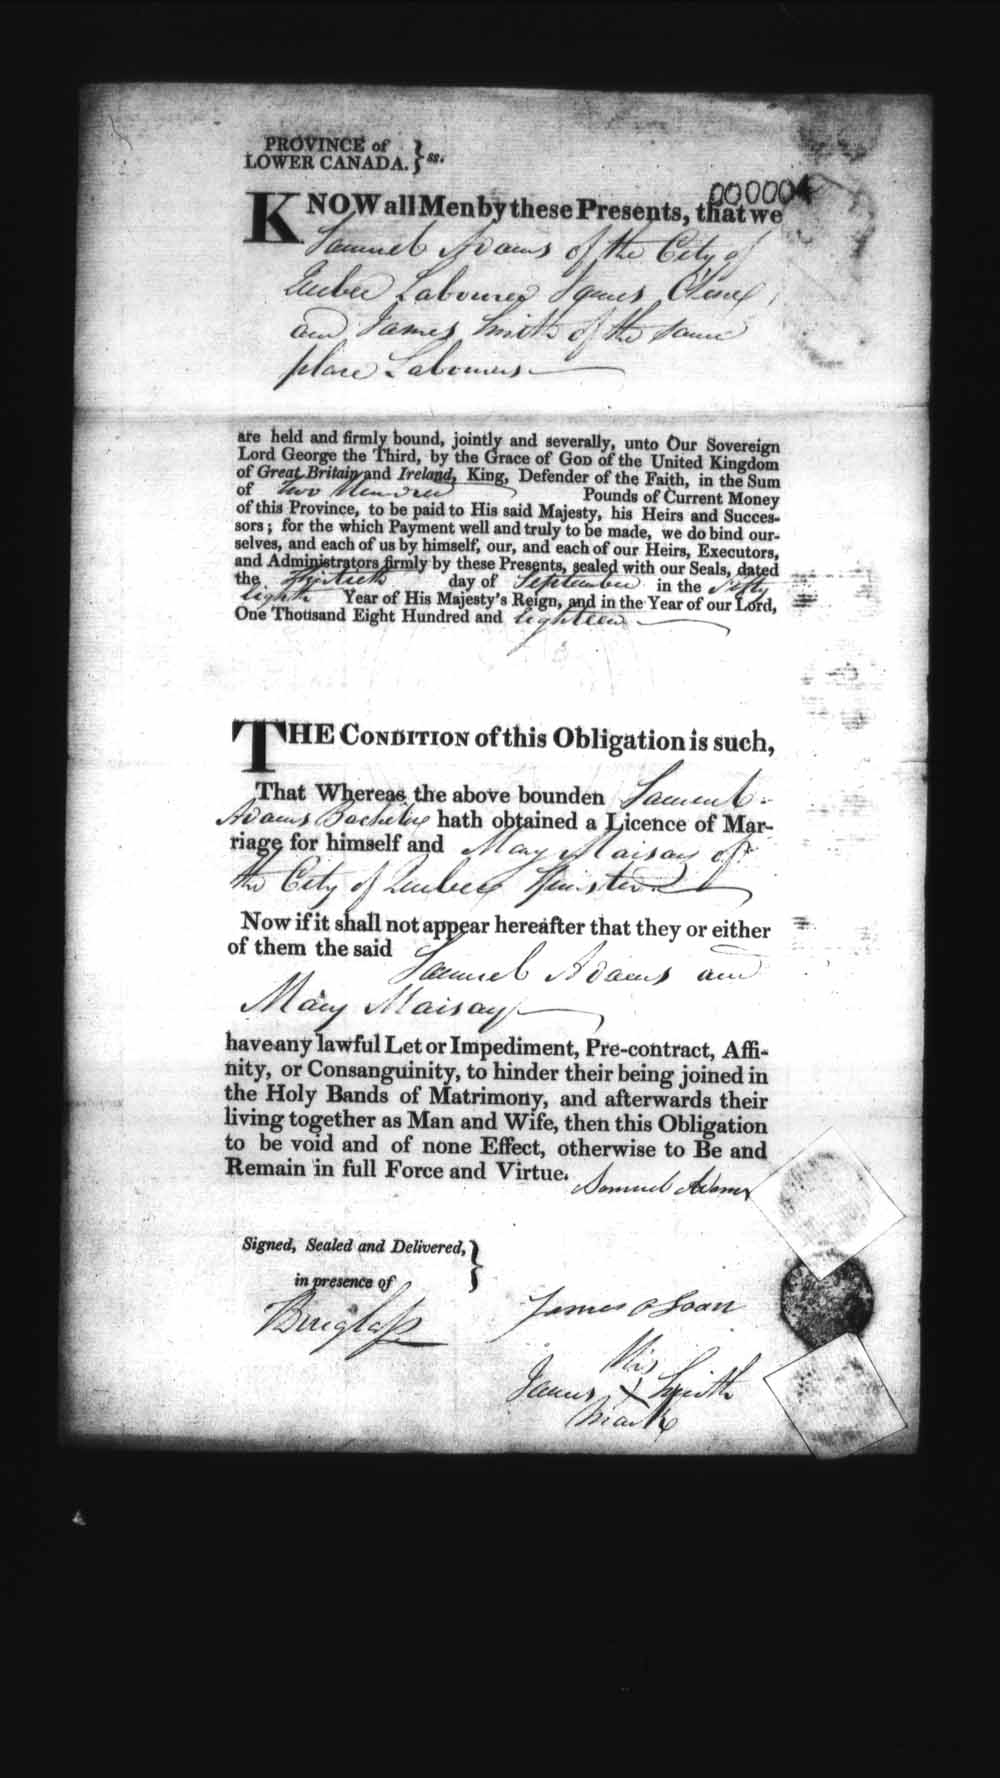 PROVINCE of
LOWER CANADA. } ss.
000004
KNOW all Men by these Presents, that we
Samuel Adams of the City of
Quebec Labourer
and James Smith of the same
place Labourers
are held and firmly bound, jointly and severally, unto Our Sovereign
Lord George the Third, by the Grace of GOD of the United Kingdom
of Great Britain and Ireland, King, Defender of the Faith, in the Sum
of Two Hundred Pounds of Current Money
of this Province, to be paid to His said Majesty, his Heirs and Succes-
sors; for the which Payment well and truly to be made, we do bind our-
selves, and each of us by himself, our, and each of our Heirs, Executors,
and Administrators firmly by these Presents, sealed with our Seals, dated
the Thirtieth day of September in the Fifty
Eighth Year of His Majesty's Reign, and in the Year of our Lord,
One Thousand Eight Hundred and Eighteen
THE CONDITION of this Obligation is such,
That Whereas the above bounden Samuel
Adams Bachelor hath obtained a Licence of Mar-
riage for himself and Mary Maisay of
the City of Quebec Spinster
Now if it shall not appear hereafter that they or either
of them the said Samuel Adams and
Mary Maisay
have any lawful Let or Impediment, Pre-contract, Affi-
nity, or Consanguinity, to hinder their being joined in
the Holy Bands of Matrimony, and afterwards their
living together as Man and Wife, then this Obligation
to be void and of none Effect, otherwise to Be and
Remain in full Force and Virtue.
Samuel Adams
Signed, Sealed and Delivered, }
in presence of
James
His
James X Smith
Mark